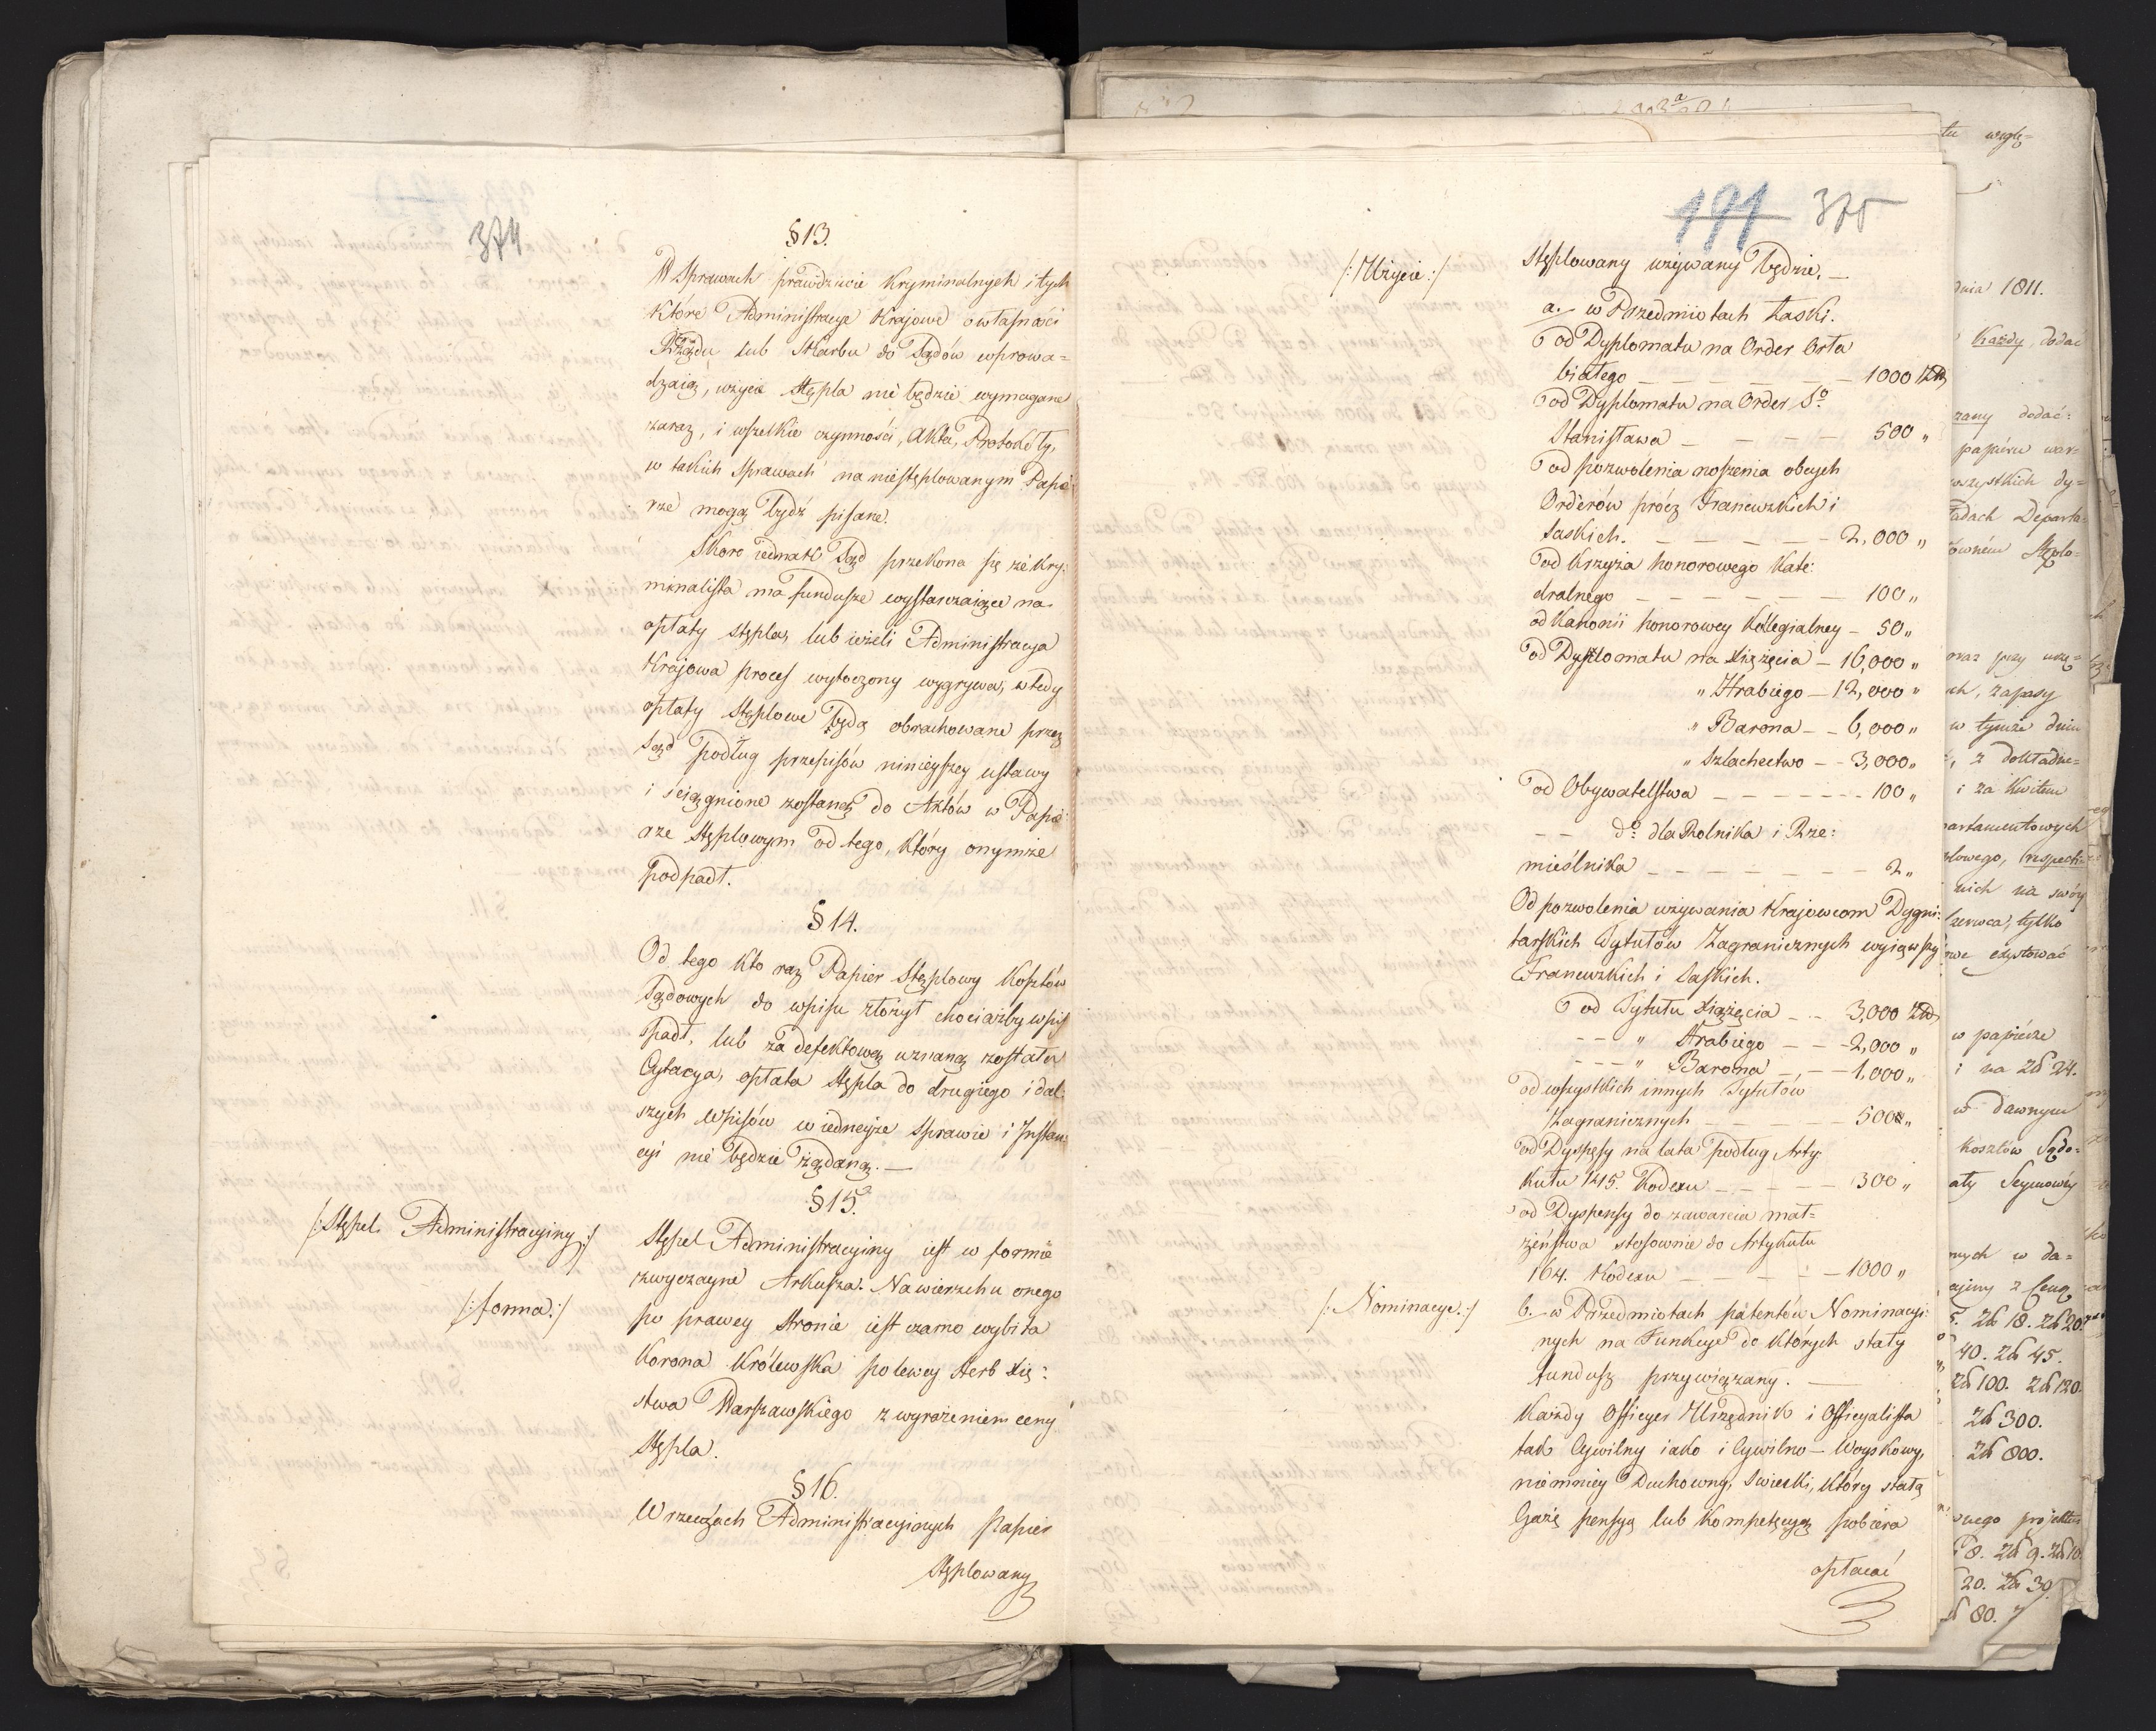 374
§ 13.
W sprawach prawdziwie Kryminalnych i tych
Które Administracye Krajowe o własności
Rządu lub Skarbu do Sądów wprowa=
dzaią, użycie Stępla nie będzie wymagane
zaraz, i wszelkie czynności, Akta, Protokóły,
w takich sprawach na niestęplowanym Papie
rze mogą bydź pisane.
Skoro iednak Sąd przekona się że Kry:
minalista ma fundusze wystarczaiące na
opłaty stępla, lub ieżeli Administracya
Krajowa proces wytoczony wygrywa, wtedy
opłaty stęplowe będą obrachowane przez
Sąd podług przepisów ninieyszey ustawy
i ściągnione zostaną do Aktów w Papie:
rze Stęplowym od tego, który onymże
podpadł.
§ 14.
Od tego kto raz Papier Stęplowy Kosztów
Sądowych do wpisu złożył chociażby wpis
spadł, lub za defektową uznaną została
Cytacya, opłata Stępla do drugiego i dal:
szych Wpisów w iedneyże sprawie i Instan:
cyi nie będzie żądaną. —
§ 15.
/: Stępel Administracyiny :/
Stępel Administracyiny iest w formie
/: forma :/
zwyczayne Arkusza. Na wierzchu onego
po prawey stronie iest czarno wybita
Korona Królewska po lewey Herb Xię:
stwa Warszawskiego z wyrażeniem ceny
Stępla.
§ 16.
W rzeczach Administracyinych papier
Stęplowany
191 375
/: Użycie :/
stęplowany używany będzie. —
a. w Przedmiotach Łaski.
od Dyplomatu na Order Orła
białego — — — — — — 1000 Złł
od Dyplomatu na Order Sº
Stanisława — — — — 500 "
od pozwolenia noszenia obcych
Orderów prócz Francuzkich i
Saskich. — — — — — 2,000 "
od Krzyża honorowego Kate:
dralnego — — — — — — 100 "
od Kanonii honorowey Kollegialney — 50 "
od Dyplomatu na Xiążęcia — 16,000 "
" Hrabiego — 12,000 "
" Barona — — 6,000 "
" Szlachectwo — — 3,000 "
od Obywatelstwa — — — — — — 100 "
— — dº dla Rolnika i Rze:
mieślnika — — — — — — — 2 "
Od pozwolenia używania Krajowcom Dygni:
tarskich Tytułów Zagranicznych wyiąwszy
Francuzkich i Saskich.
od Tytułu Xiążęcia — — 3,000 Złł
— — " Hrabiego — — 2,000 "
— — — " Barona — — — 1,000 "
od wszystkich innych Tytułów
Zagranicznych — — — — — 500 "
od Dyspęsy na lata podług Arty:
kułu 145. Kodexu — — — — 300 "
od Dyspensy do zawarcia mał=
żeństwa stosownie do Artykułu
164. Kodexu — — — — — 1000 "
/: Nominacye. :/
b. w Przedmiotach patentów Nominacyi:
nych na Funkcye do których stały
fundusz przywiązany. —
Każdy Officyer Urzędnik i Officyalista
tak Cywilny iako i Cywilno — Woyskowy,
niemniey Duchowny, Swiecki, który stałą
Gażę pensyą lub Kompetęcyą pobiera
opłacać
tu wzglę=
dnia 1811.
Każdy, dodać
zany dodać:
papiéru war=
wszystkich dy=
ładach Departa=
ównem Stęplo=
oraz przy urzę=
ch, zapasy
w tymże dniu
, z dokładne=
i za Kwitem
partamentowych
plowego, respecti=
nich na swóy
Czerwca, tylko
exystować
w papiérze
i na Zł 24.
w dawnym
Kosztów Sądo=
aty Seymowéy
nych w da=
ajmy z Ceną
5. Zł 18. Zł 20.
40. Zł 45.
Zł 100. Zł 120.
Zł 300.
Zł 800.
wnego projektu
8. Zł 9. Zł 10.
20. Zł 30.
80.